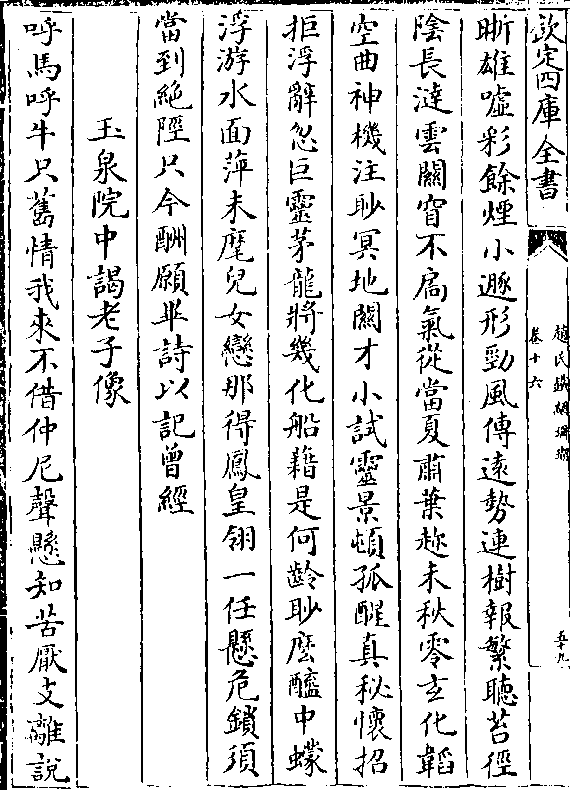 欽定四庫全書
趙氏鐵網珊瑚
卷十六
五十九
晰雄噓彩餘煙小遯形勁風傳遠勢連樹報繁聽苔徑
陰長漣雲關窅不扃氣從當夏肅葉趂未秋零玄化韜
空曲神機注眇冥地關才小試靈景頓孤醒真秘懷招
拒浮辭忽巨靈茅龍將幾化船藉是何齡眇麽醯中蠓
浮游水面萍未麾兒女戀那得鳳皇翎一任懸危鎖須
當到絶陘只今酬願畢詩以記曾經
玉泉院中謁老子像
呼馬呼牛只舊情我來不借仲尼聲懸知苦厭支離說